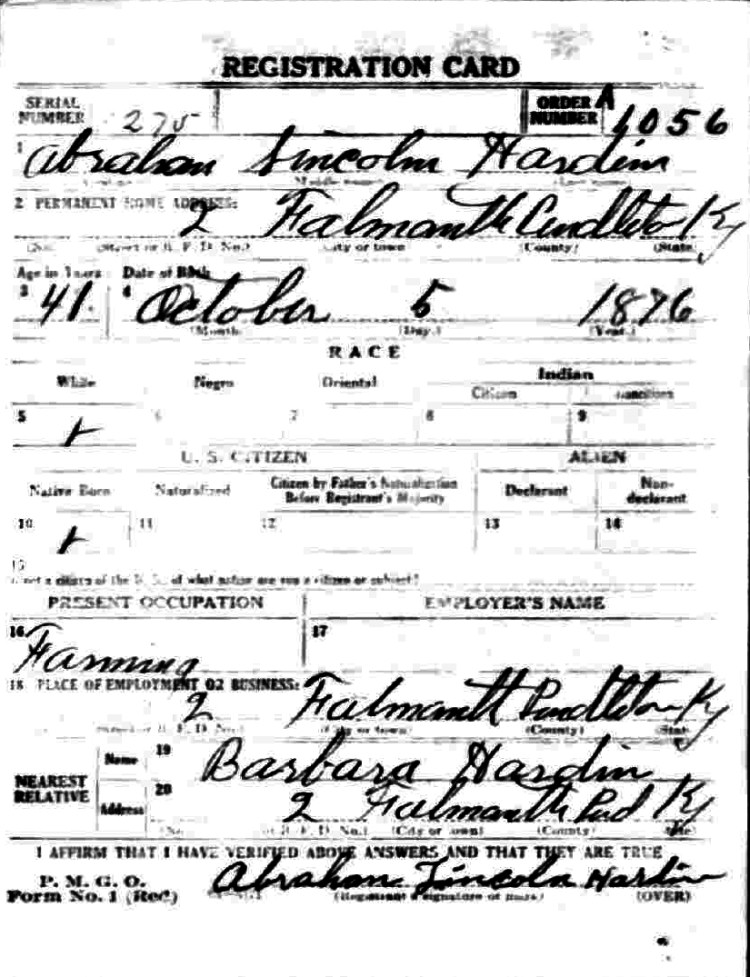 REGISTRATION CARD
SERIAL NUMBER 275 ORDER NUMBER A 1056
1 Abraham Lincoln Hardin
2 PERMANENT HOME ADDRESS: 2 Falmanth Pendleton Ky
(No.) (Street or R. F. D. No.) (City or town) (County) (State)
Age in Years Date of Birth
3 41 4 October 5 1876
(Month) (Day.) (Year.)
RACE
White Negro Oriental Indian
Citizen
5 6 7 8 9
U. S. CITIZEN ALIEN
Native Born Naturalized Citizen by Father's Naturalization Before Registrant's Majority Declarant Non-declarant
10 11 12 13 14
15
not a citizen of the U. S., of what nation are you a citizen or subject?
PRESENT OCCUPATION EMPLOYER'S NAME
16 Farming 17
18 PLACE OF EMPLOYMENT OR BUSINESS:
2 Falmanth Pendleton Ky
R. F. D. No.) (City or town) (County) (State)
NEAREST RELATIVE Name 19 Barbara Hardin
Address 20 2 Falmanth Pend Ky
(No.) or R. F. D. No.) (City or town) (County)
I AFFIRM THAT I HAVE VERIFIED ABOVE ANSWERS AND THAT THEY ARE TRUE
P. M. G. O.
Form No. 1 (Red) Abraham Lincoln Hardin
(Registrant's signature or mark) (OVER)